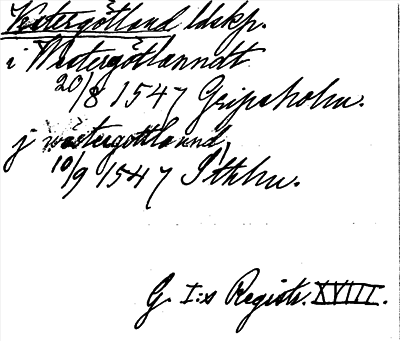 Västergötland ldskp.
i Westergötlanndt
20/8 1547 Gripsholm.
j westergottlannd,
10/9 1547 Sthlm.
G. I:s Registr. XVIII.